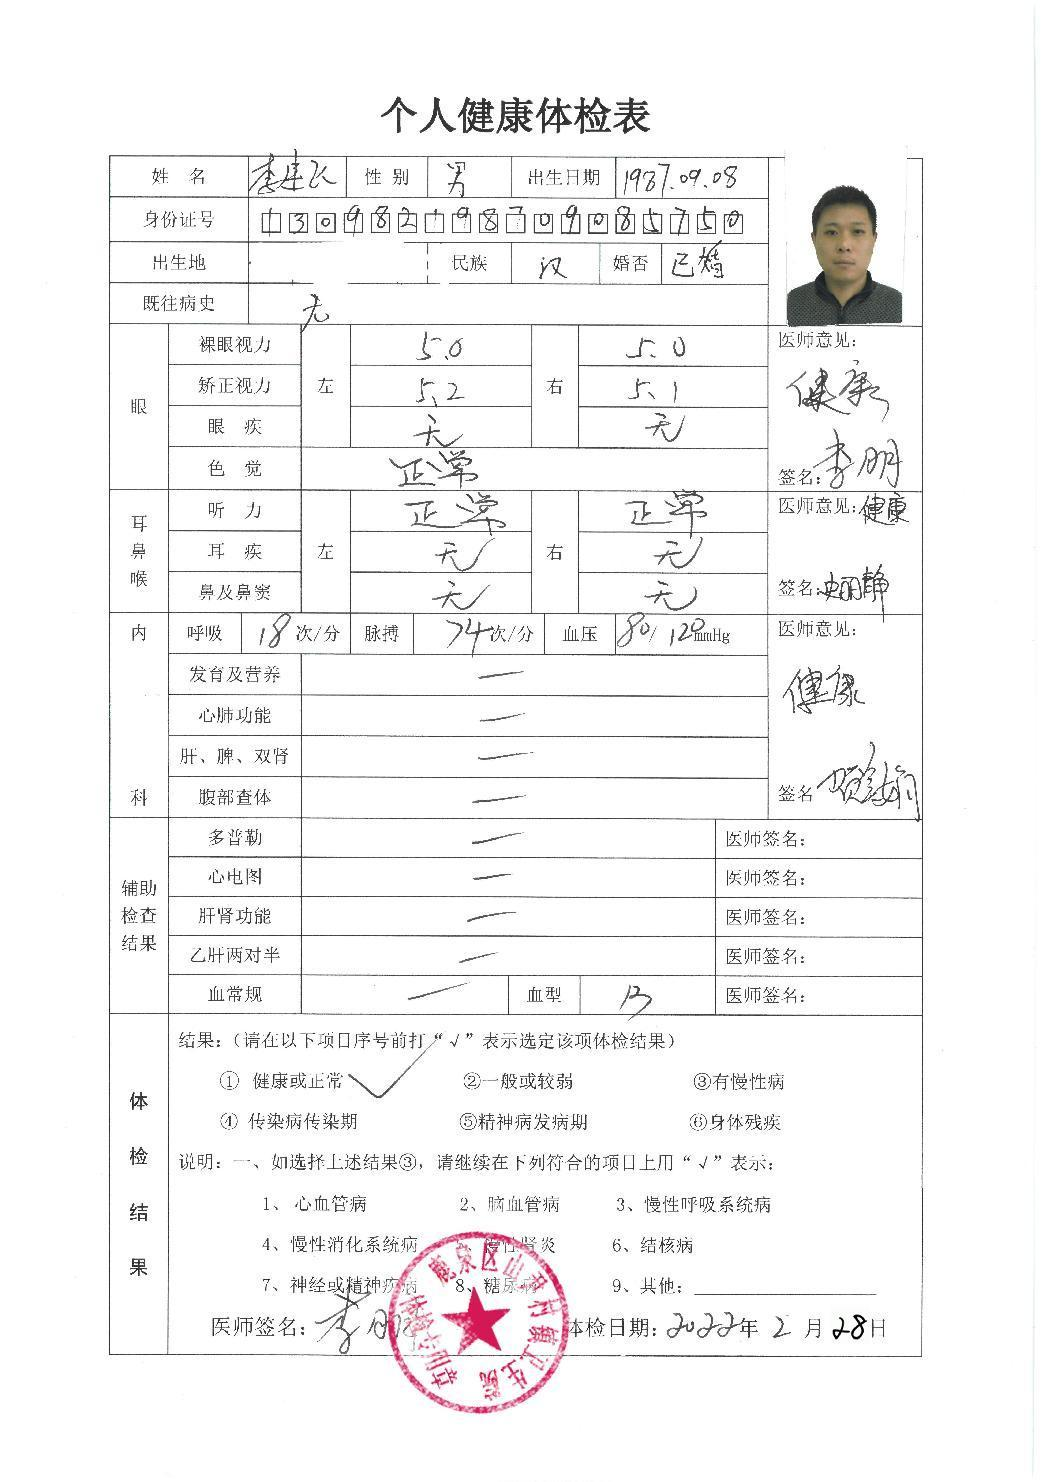 个人健康体检表
姓 名 李建飞 性 别 男 出生日期 1987.09.08
身份证号 130982198709085750
出生地 民族 汉 婚否 已婚
既往病史 无
眼 裸眼视力 左 5.0 右 5.0 医师意见：
矫正视力 5.2 5.1 健康
眼 疾 无 无
色 觉 正常 签名：李明
耳鼻喉 听 力 左 正常 右 正常 医师意见：健康
耳 疾 无 无
鼻及鼻窦 无 无 签名：
内科 呼吸 18 次/分 脉搏 74 次/分 血压 80/120mmHg 医师意见：
发育及营养 —
心肺功能 — 健康
肝、脾、双肾 —
腹部查体 — 签名
辅助检查结果 多普勒 — 医师签名：
心电图 — 医师签名：
肝肾功能 — 医师签名：
乙肝两对半 — 医师签名：
血常规 — 血型 B 医师签名：
体检结果 结果：（请在以下项目序号前打“√”表示选定该项体检结果）
① 健康或正常 √ ②一般或较弱 ③有慢性病
④ 传染病传染期 ⑤精神病发病期 ⑥身体残疾
说明：一、如选择上述结果③，请继续在下列符合的项目上用“√”表示：
1、 心血管病 2、脑血管病 3、慢性呼吸系统病
4、慢性消化系统病 慢性肾炎 6、结核病
7、神经或精神疾病 8、糖尿病 9、其他：
医师签名：李明 体检日期：2022年 2 月 28日
鹿泉区山尹村镇卫生院
体检专用章